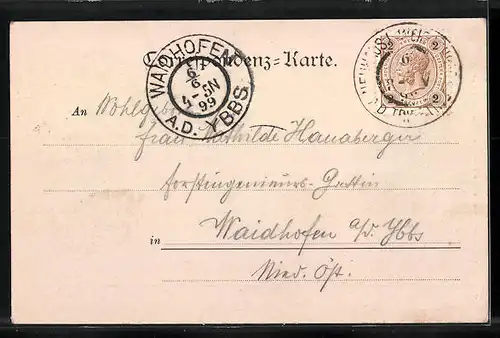 Correspondenz-Karte.
WAIDHOFEN
6/6
4-5N
99
A.D. YBBS
2 2
An Wohlgeboren
Frau Mathilde Hanaberger
Forstingenieurs-Gattin
in Waidhofen a/d Ybbs
Nied. Öst.